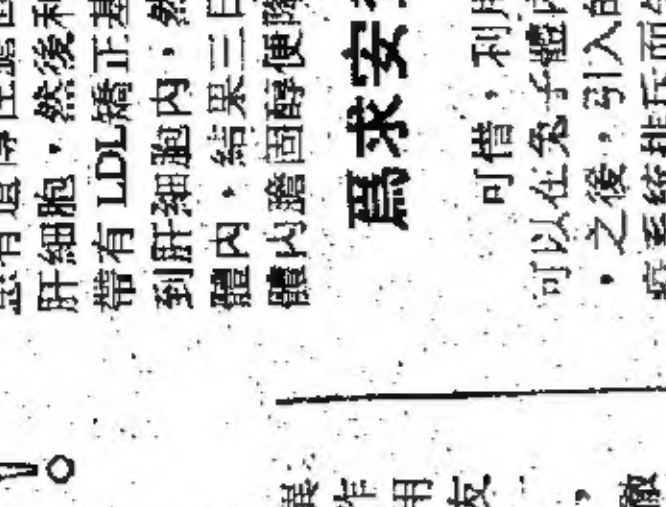 有遺傳性膽固
肝細胞,然後利
帶有 LDL矯正基
到肝細胞內,然
體內,結果三日
體內膽固醇便降
爲求安
可惜,利用
可以在兔子體內
,之後,引入的
系統排斥而
!。
作
用
友
,